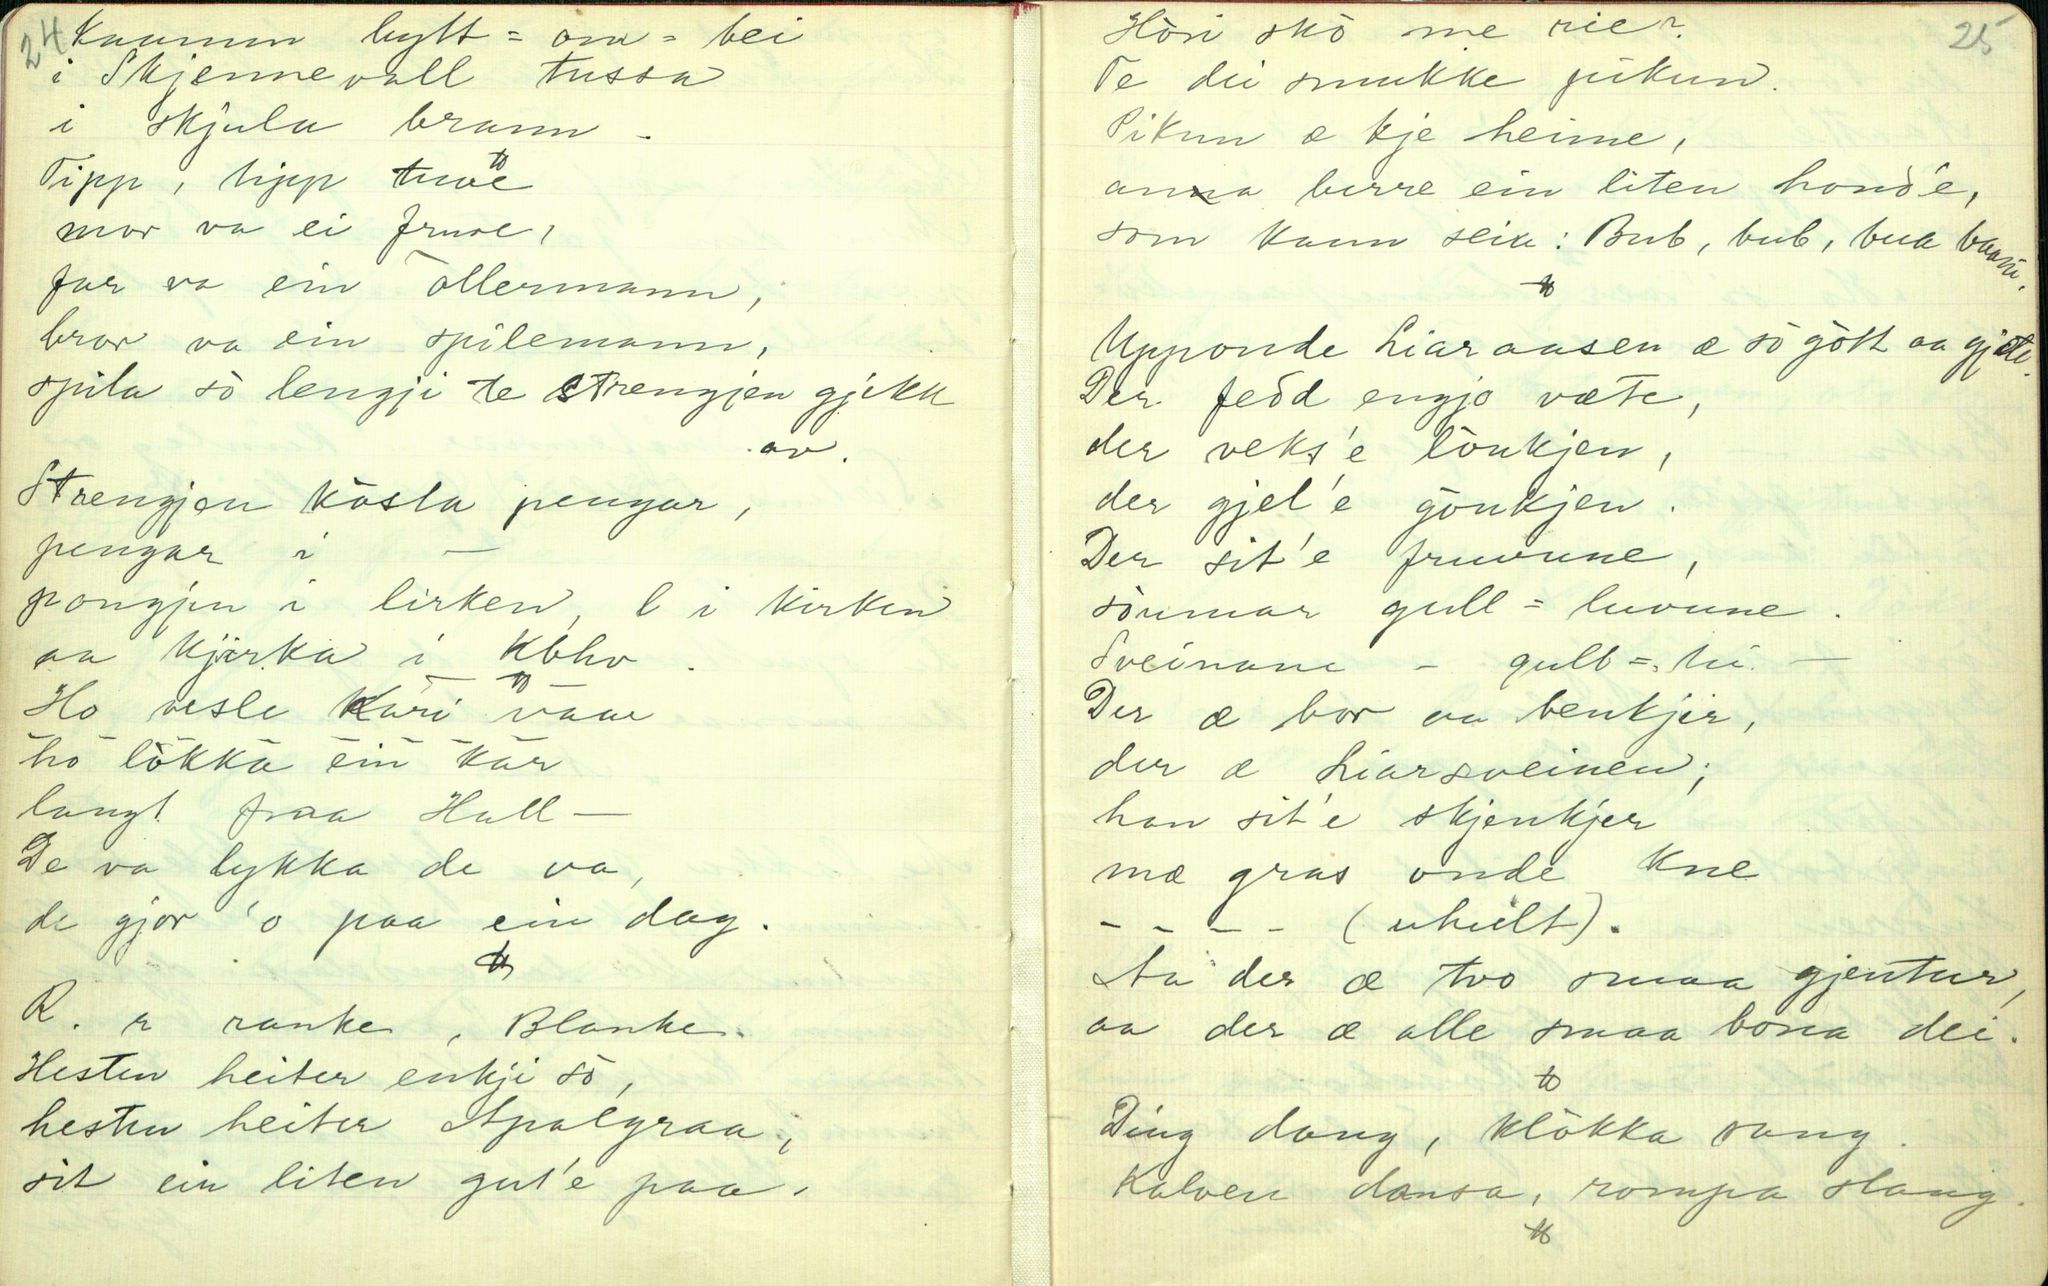 24
Kaamm bytt = om = bei
i Skjennevall tussa
i skjula brann -
Tipp, tipp tuve
mor va ei fruve,
far va ein ollermann,
bror va ein spilemann,
spila sò lengji te strengjen gjekk
av.
Strengjen kòsta pengar,
pengar i —
pongjen i lirken, l i kirken
aa kjirka i Kbhv.
Ho vesle Kari vaar
ho lòkka ein kar
langt fraa Hall —
De va lykka de va,
de gjor 'o paa ein dag.
R. r ranke, Blanke.
Hesten heiter enkji sò,
hesten heiter Apalgraa,
sit ein liten gut'e paa.
25
Hòri skò me rie?
Te dei smukke pikun.
Pikun æ kje heime,
anna berre ein liten hond'e,
som kann seia: Bub, bub, bua baani.
Upponde Liaraasen æ sò gòtt aa gjæte.
Der fedd engjo væte,
der veks'e lòukjen,
der gjel'e gòukjen.
Der sit'e fruvune,
sòumar gull = luvune.
Sveinane - gull = ti —
Der æ bor aa benkjer,
der æ Liarsveinen;
han sit'e skjenkjer
mæ gras onde kne
- - - - (uheilt).
Aa der æ tvo smaa gjentur,
aa der æ alle smaa bona dei.
Ding dang, klòkka sang.
Kalven dansa, rompa slang.